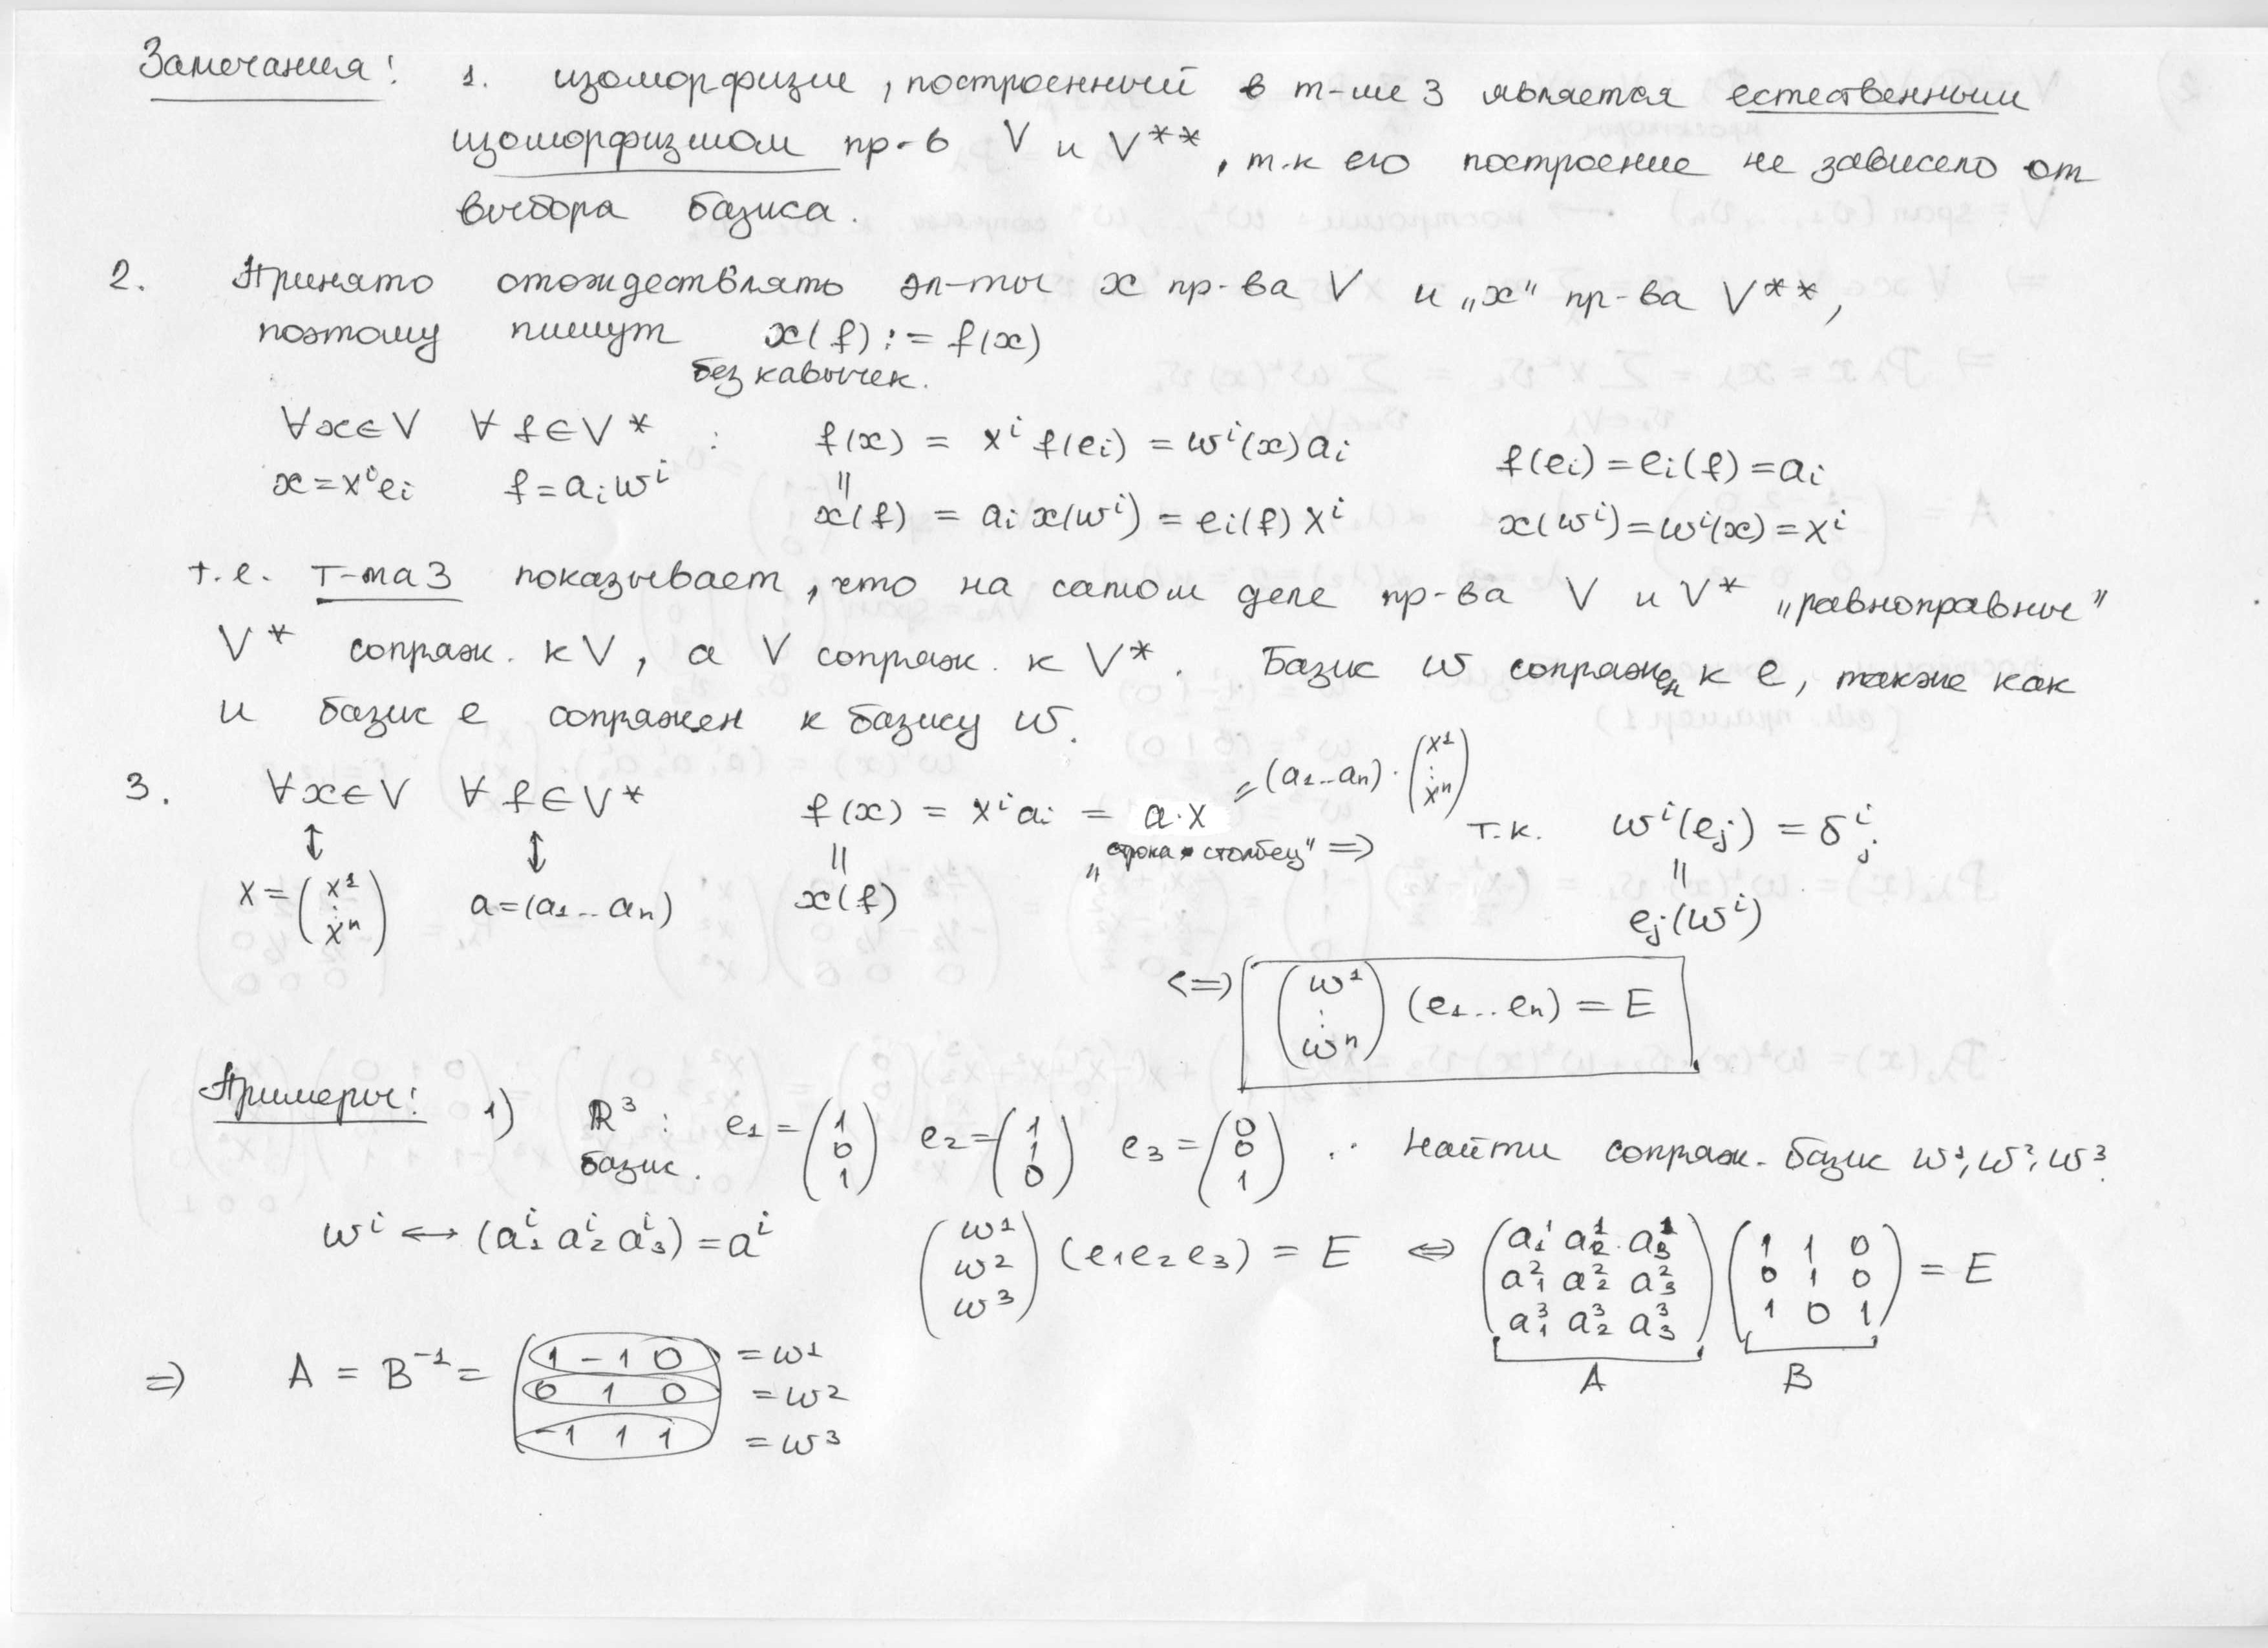 Замечания: 1. изоморфизм, построенный в т-ме 3 является естественным
изоморфизмом пр-в V и V**, т.к его построение не зависело от
выбора базиса.
2. Принято отождествлять эл-ты x пр-ва V и „x" пр-ва V**,
поэтому пишут x(f) := f(x)
без кавычек.
∀x∈V ∀f∈V* : f(x) = xⁱ f(eᵢ) = ωⁱ(x)aᵢ f(eᵢ) = eᵢ(f) = aᵢ
x = xⁱeᵢ f = aᵢωⁱ || x(f) = aᵢ x(ωⁱ) = eᵢ(f) xⁱ x(ωⁱ) = ωⁱ(x) = xⁱ
т.е. т-ма 3 показывает, что на самом деле пр-ва V и V* „равноправны"
V* сопряж. к V, а V сопряж. к V*. Базис ω сопряжен к e, также как
и базис e сопряжен к базису ω.
3. ∀x∈V ∀f∈V* f(x) = xⁱaᵢ = a·x = (a₁...aₙ)·(x¹ ⋮ xⁿ) т.к. ωⁱ(eⱼ) = δⁱⱼ
↕ ↕ || „строка • столбец" => ||
x = (x¹ ⋮ xⁿ) a = (a₁...aₙ) x(f) eⱼ(ωⁱ)
<=> (ω¹ ⋮ ωⁿ) (e₁...eₙ) = E
Примеры: 1) ℝ³: e₁ = (1 0 1) e₂ = (1 1 0) e₃ = (0 0 1) ∴ Найти сопряж. базис ω¹, ω², ω³.
базис.
ωⁱ ↔ (aⁱ₁ aⁱ₂ aⁱ₃) = aⁱ (ω¹ ω² ω³) (e₁e₂e₃) = E <=> (a¹₁ a¹₂ a¹₃ a²₁ a²₂ a²₃ a³₁ a³₂ a³₃) (1 1 0 0 1 0 1 0 1) = E
A B
=> A = B⁻¹ = (1 -1 0 = ω¹
0 1 0 = ω²
-1 1 1) = ω³